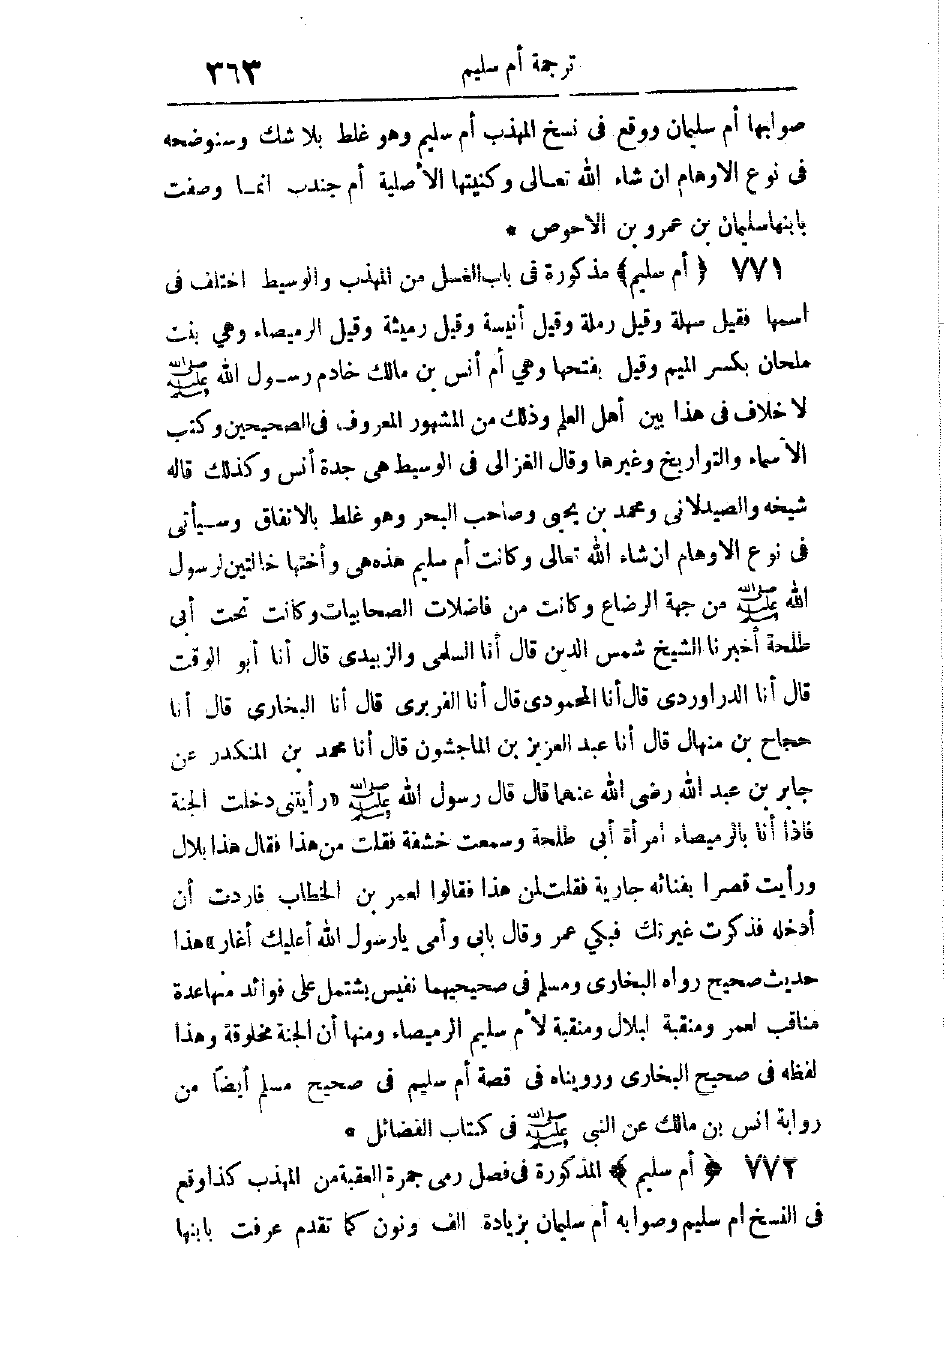 ترجمة أم سليم ٣٦٣
صوابها أم سليمان ووقع فى نسخ المهذب أم سليم وهو غلط بلا شك وسنوضحه
فى نوع الاوهام ان شاء الله تعالى وكنيتها الأصلية أم جندب انما وصفت
بابنها سليمان بن عمرو بن الاحوص *
٧٧١ ﴿ أم سليم ﴾ مذكورة فى باب الغسل من المهذب والوسيط اختلف فى
اسمها فقيل سهلة وقيل رملة وقيل أنيسة وقيل رميثة وقيل الرميصاء وهي بنت
ملحان بكسر الميم وقيل بفتحها وهي أم أنس بن مالك خادم رسول الله ﷺ
لا خلاف فى هذا بين أهل العلم وذلك من المشهور المعروف فى الصحيحين وكتب
الأسماء والتواريخ وغيرها وقال الغزالى فى الوسيط هى جدة أنس وكذلك قاله
شيخه والصيدلانى ومحمد بن يحيى وصاحب البحر وهو غلط بالاتفاق وسيأتى
فى نوع الاوهام ان شاء الله تعالى وكانت أم سليم هذه هى وأختها خالتين لرسول
الله ﷺ من جهة الرضاع وكانت من فاضلات الصحابيات وكانت تحت أبى
طلحة أخبرنا الشيخ شمس الدين قال أنا السلمى والزبيدى قال أنا أبو الوقت
قال أنا الدراوردى قال أنا المحمودى قال أنا الفربرى قال أنا البخارى قال أنا
حجاج بن منهال قال أنا عبد العزيز بن الماجشون قال أنا محمد بن المنكدر عن
جابر بن عبد الله رضى الله عنهما قال قال رسول الله ﷺ «رأيتنى دخلت الجنة
فاذا أنا بالرميصاء امرأة أبى طلحة وسمعت خشفة فقلت من هذا فقال هذا بلال
ورأيت قصرا بفنائه جارية فقلت لمن هذا فقالوا لعمر بن الخطاب فاردت أن
أدخله فذكرت غيرتك فبكي عمر وقال بابى وأمى يارسول الله أعليك أغار» هذا
حديث صحيح رواه البخارى ومسلم فى صحيحيهما نفيس يشتمل على فوائد منها عدة
مناقب لعمر ومنقبة لبلال ومنقبة لأم سليم الرميصاء ومنها أن الجنة مخلوقة وهذا
لفظه فى صحيح البخارى ورويناه فى قصة أم سليم فى صحيح مسلم أيضاً من
رواية انس بن مالك عن النبى ﷺ فى كتاب الفضائل *
٧٧٢ ﴿ أم سليم ﴾ المذكورة فى فصل رمى جمرة العقبة من المهذب كذا وقع
فى النسخ أم سليم وصوابه أم سليمان بزيادة الف ونون كما تقدم عرفت بابنها